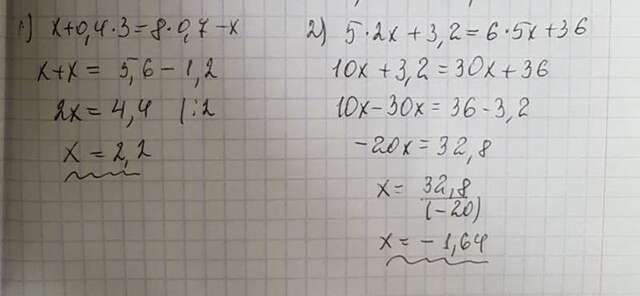 1) x+0,4·3=8·0,7-x
x+x = 5,6-1,2
2x = 4,4 |:2
x = 2,2
2) 5·2x+3,2=6·5x+36
10x+3,2=30x+36
10x-30x=36-3,2
-20x=32,8
x= 32,8
(-20)
x=-1,64